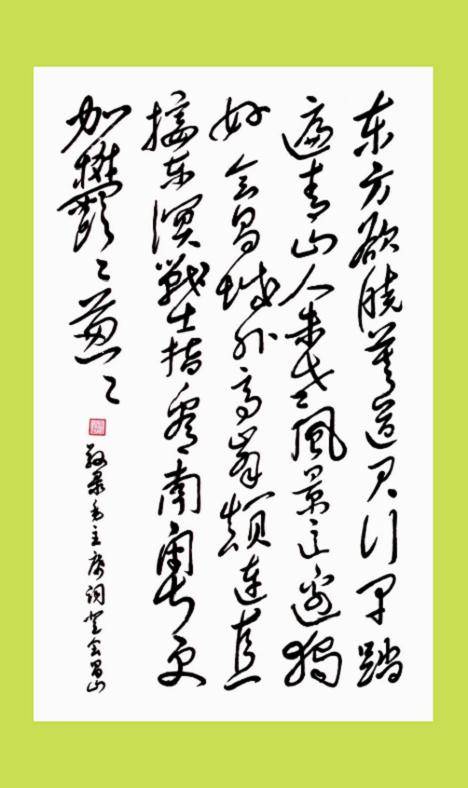 东方欲晓莫道君行早踏
遍青山人未老風景这边独
好会昌城外高峰颠连直
接东溟戰士指看南粤更
加鬱々葱々
敬录毛主席词登会昌山